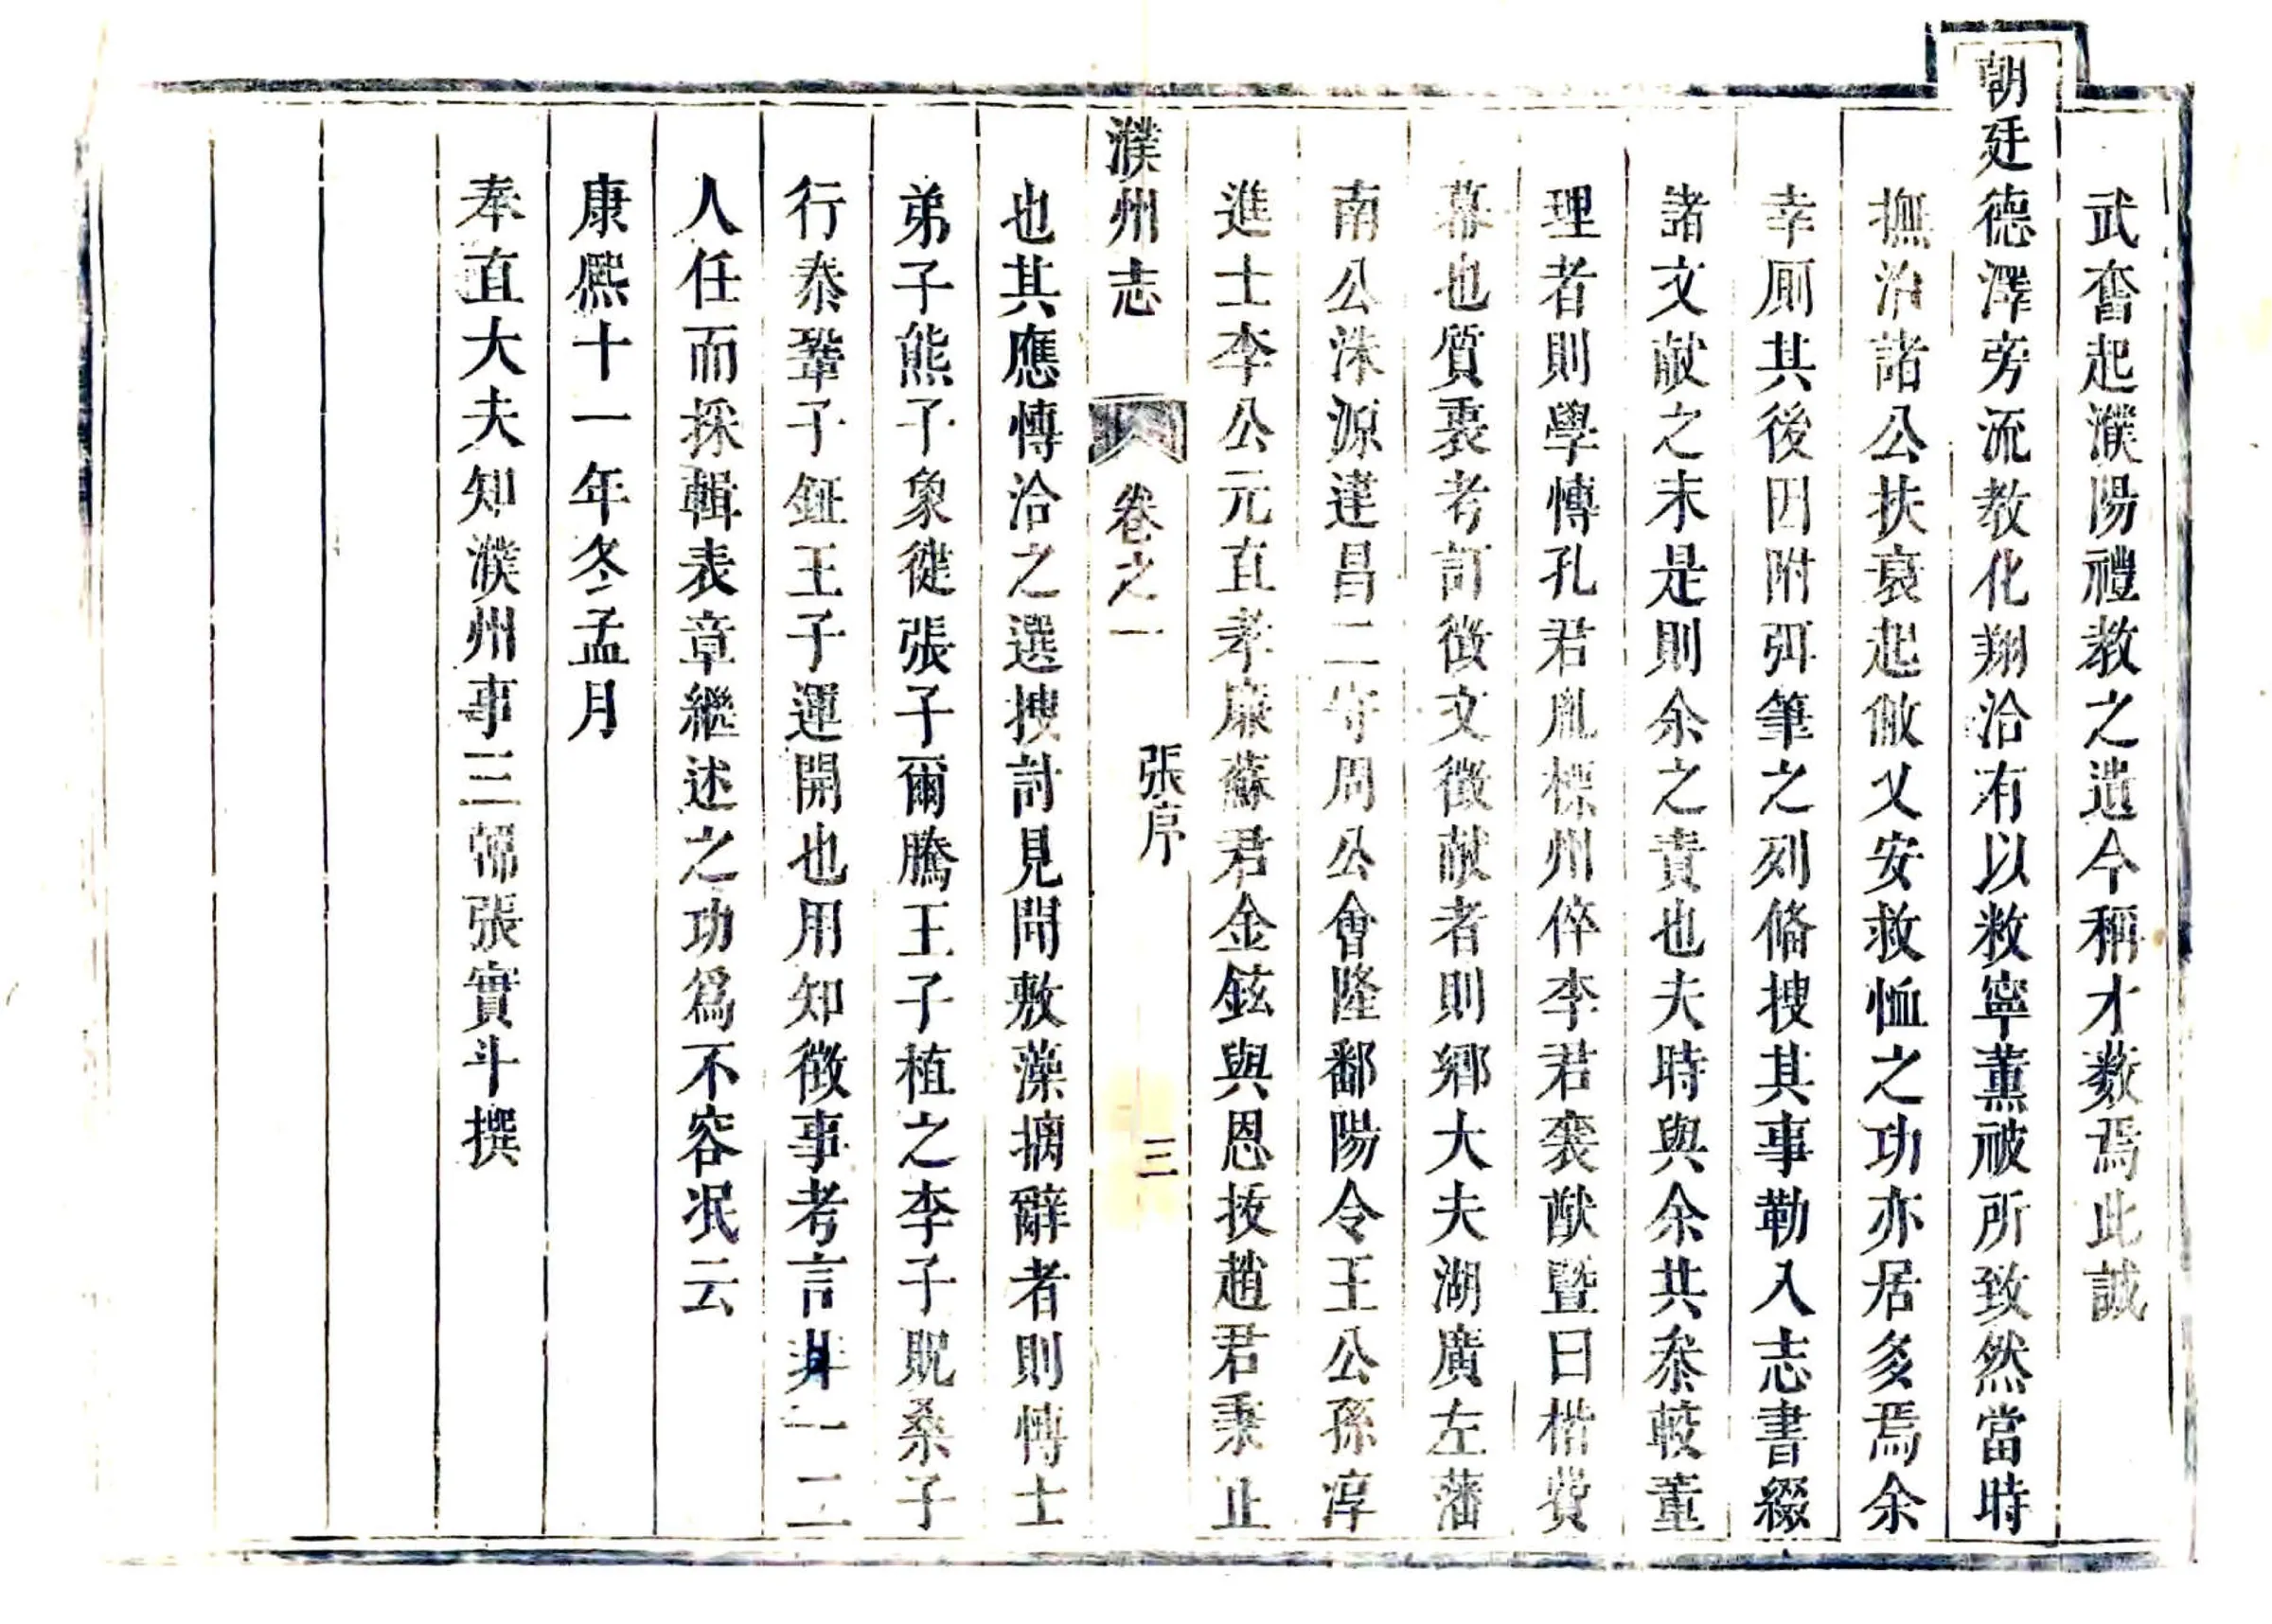 武奮起濮陽禮教之遺今稱才藪焉此誠
朝廷德澤旁流教化翔洽有以敉寧薰祓所致然當時
撫治諸公扶衰起敝乂安救恤之功亦居多焉余
幸厠其後因附弭筆之列脩搜其事勒入志書綴
諸文献之末是則余之責也夫時與余共叅較董
理者則學博孔君胤標州倅李君裘猷暨曰楷費
幕也質裏考訂徵文徵献者則鄉大夫湖廣左藩
南公洙源達昌二守周公會隆鄱陽令王公孫淳
進士李公元直孝廉蘇君金鉉與恩拔趙君秉止
濮州志 卷之一 張序 三
也其應博洽之選搜討見聞敷藻摛辭者則博士
弟子熊子象徙張子爾騰王子植之李子貺桑子
行泰鞏子鉦王子運開也用知徵事考言非一二
人任而採輯表章繼述之功爲不容泯云
康熙十一年冬孟月
奉直大夫知濮州事三韓張實斗撰